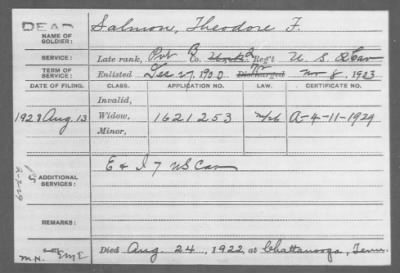 DEAD Salmon, Theodore F.
NAME OF SOLDIER:
SERVICE: Late rank, Pvt B Co. 2 Reg't U. S. Cav
TERM OF SERVICE: Enlisted Dec 27, 1920 Discharged Nov 8, 1923
DATE OF FILING. CLASS. APPLICATION NO. LAW. CERTIFICATE NO.
Invalid,
1928 Aug. 13 Widow, 1621253 A-4-11-1929
Minor,
ADDITIONAL SERVICES: E & I 7 US Cav
REMARKS:
M.N. EME Died Aug. 24, 1922, at Chattanooga, Tenn.